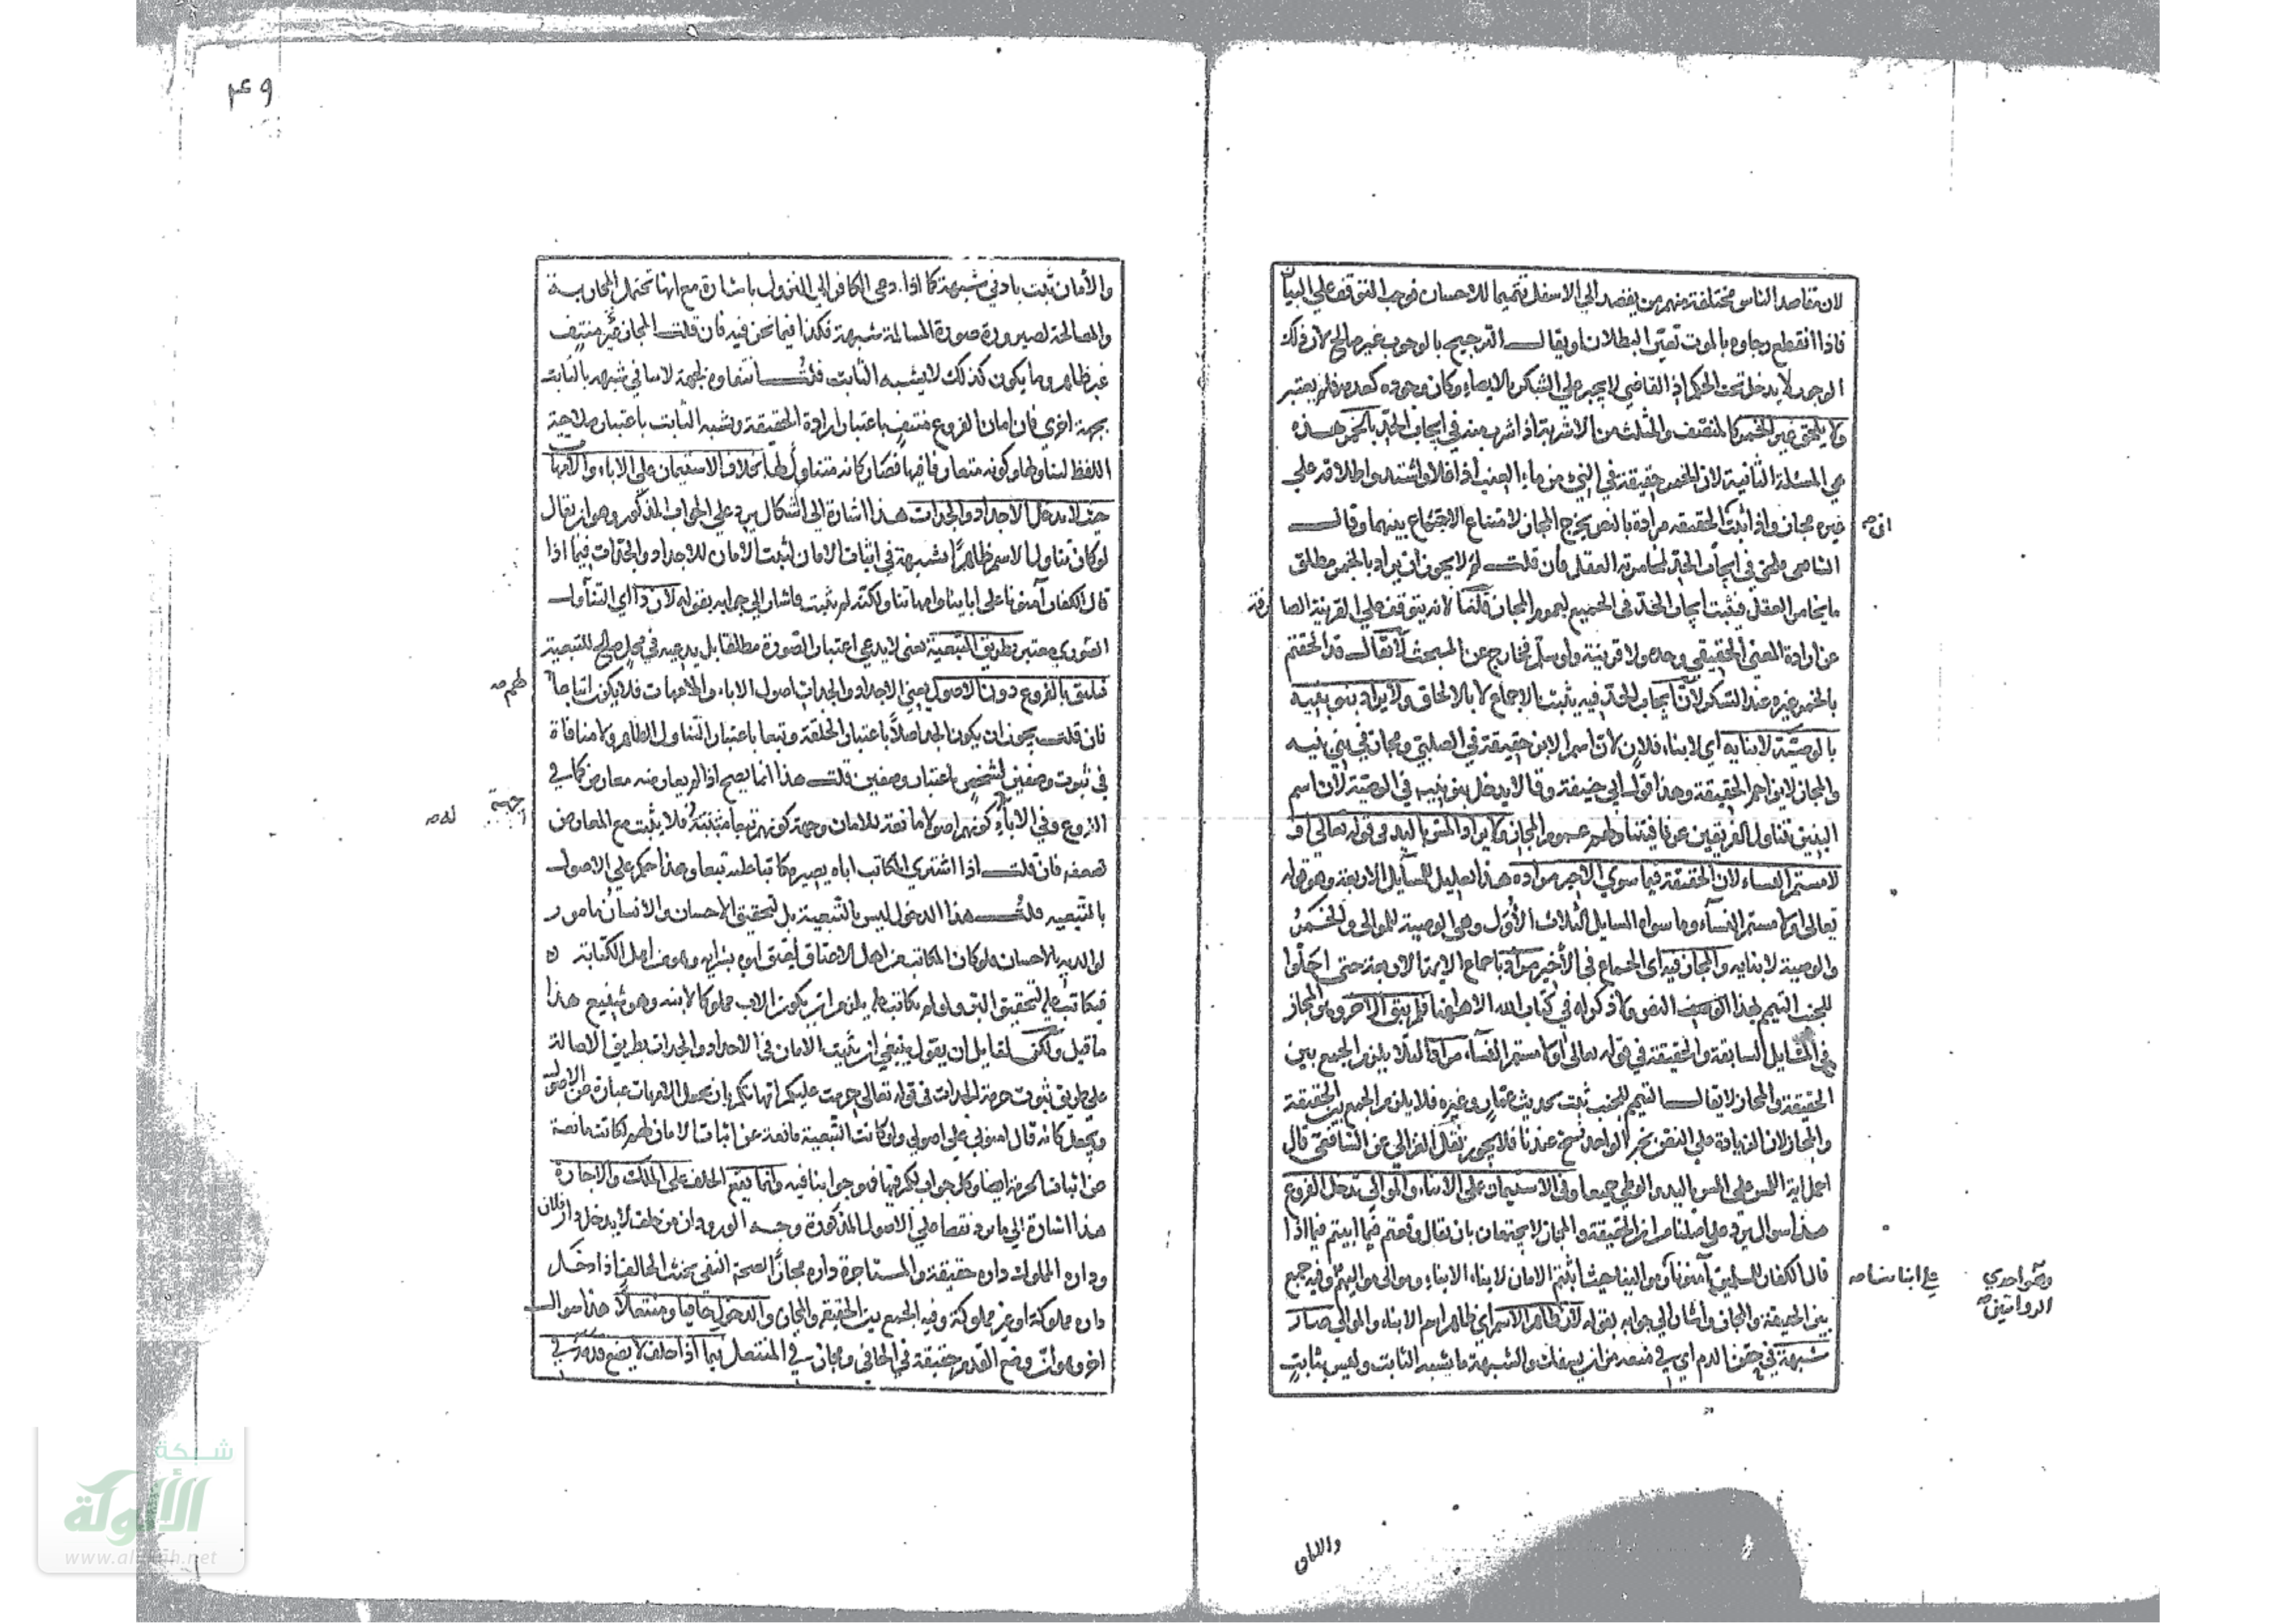 لان مقاصد الناس مختلفة منهم من يقصد الي الاسفل تتميما للاحسان فوجب التوقف علي البيان
فاذا انقطع رجاوه بالموت تعين البطلان او يقال الترجيح بالوجوب غير صالح لان ذلك
الوجوب لا يدخل تحت الحكم اذ القاضي لا يجبر علي الشكر بالايصاء وكان وجوده كعدمه فلم يعتبر
ولا يلحق غير الخمر كالمنصف والمثلث من الاشربة اذا شرب منه في ايجاب الحد بالخمر هذه
هي المسئلة الثانية لان الخمر حقيقة في الني من ماء العنب اذا غلا واشتد واطلاقه علي
غيره مجاز واذا ثبت الحقيقه مرادة بالنص يخرج المجاز لامتناع الاجتماع بينهما وقال
الشافعي يلحق في ايجاب الحد لمخامرته العقل فان قلت لم لا يجوز ان يراد بالخمر مطلق
ما يخامر العقل فيثبت ايجاب الحد في الجميع لعموم المجاز قلنا لانه يتوقف علي القرينة الصارفة
عن ارادة المعني الحقيقي وحده ولا قرينة ولو سلم فخارج عن المبحث لا يقال قد الحقتم
بالخمر غيره عند السكر لان ايجاب الحد فيه يثبت بالاجماع لا بالالحاق ولا يراد بنو بنيه
بالوصية لابنايه اي لابناء فلان لان اسم الابن حقيقة في الصلبي ومجاز في بني بنيه
والمجاز لا يزاحم الحقيقة وهذا قول ابي حنيفة وقالا يدخل بنو بنيه في الوصية لان اسم
البنين تناول الفريقين عرفا فيتناولهم عموم المجاز ولا يراد المس باليد في قوله تعالي او
لامستم النساء لان الحقيقة فيما سوي الاخير مراده هذا تعليل للمسايل الاربعة وهو قوله
تعالي او لامستم النساء وما سواه المسايل الثلاث الاول وهي الوصية للموالي والخمر
والوصية لابنايه والمجاز فيه اي الجماع في الاخير مرادة باجماع الايمة الاربعة حتي احلوا
للجنب التيمم بهذا النص ولا ذكر له في كتاب الله الا ههنا فلم يبق الاخر وهو المجاز
في المسايل السابقة والحقيقة في قوله تعالي او لامستم النساء مرادا لئلا يلزم الجمع بين
الحقيقة والمجاز لا يقال التيمم للجنب ثبت بحديث عمار وغيره فلا يلزم الجمع بين الحقيقة
والمجاز لان الزيادة علي النص بخبر الواحد نسخ عندنا فلا يجوز نقل الغزالي عن الشافعي قال
احمل اية اللمس علي المس باليد والوطي جميعا وفي الاستيمان علي الابناء والموالي تدخل الفروع
هذا سوال يرد علي اصلنا من ان الحقيقة والمجاز لا يجتمعان بان يقال وقعتم فيما ابيتم فيما اذا
قال الكفار للمسلمين آمنونا وموالينا حيث اثبتم الامان لابناء الابناء وموالي مواليهم وفيه جمع
بين الحقيقة والمجاز واشار الي جوابه بقوله لان ظاهر الاسم اي ظاهر اسم الابناء والموالي صار
شبهة في حقن الدم اي في منعه من ان يسفك والشبهة ما يشبه الثابت وليس بثابت
انه
علي ابناينا صه
وهو احدي
الروايتين صه
والامان
٤٩
والأمان ثبت بادني شبهة كما اذا دعي الكافر الي النزول باشارة مع انها تحتمل المحاربة
والمصالحة لصيرورة صورة المسالمة شبهة فكذا فيما نحن فيه فان قلت المجاز منتف
غير ظاهر وما يكون كذلك لا يشبه الثابت قلت انتفاوه لجهة لا ينافي شبهه بالثابت
بجهة اخري فان امان الفروع منتف باعتبار ارادة الحقيقة ويشبه الثابت باعتبار صلاحية
اللفظ لتناولها وكونه متعارفا فيها فصار كانه متناول لها بخلاف الاستيمان علي الاباء والامهات
حيث لا يدخل الاجداد والجدات هذا اشارة الي اشكال يرد علي الجواب المذكور وهو ان يقال
لو كان تناول الاسم ظاهرا شبهة في اثبات الامان لثبت الامان للاجداد والجدات فيما اذا
قال الكفار آمنونا علي اباينا وامهاتنا ولكنه لم يثبت فاشار الي جوابه بقوله لان ذا اي التناول
الصوري معتبر بطريق التبعية يعني لا يدعي اعتبار الصورة مطلقا بل يدعيه في محل صالح للتبعية
فيليق بالفروع دون الاصول يعني الاجداد والجدات اصول الاباء والامهات فلا يكون اتباعا
فان قلت يجوز ان يكون الجد اصلا باعتبار الخلقة وتبعا باعتبار التناول الظاهر ولا منافاة
في ثبوت وصفين لشخص باعتبار وصفين قلت هذا انما يصح اذا لم يعارضه معارض كما في
الفروع وفي الاباء كونهم اصولا مانعة للامان وجهة كونهم تبعا مثبتة فلا يثبت مع المعارض
لضعفه فان قلت اذا اشتري المكاتب اباه يصير مكاتبا عليه تبعا وهذا حكم علي الاصول
بالتبعيه قلت هذا الدخول ليس بالتبعية بل لتحقيق الاحسان والانسان مامور
لوالديه بالاحسان ولو كان المكاتب من اهل الاعتاق لعتق ابوه بشرايه وهو من اهل الكتابة
فيكاتب عليه لتحقيق البر ولو لم يكاتب عليه يلزم ان يكون الاب مملوكا لابنه وهو شنيع هذا
ما قيل ولكن لقايل ان يقول ينبغي ان يثبت الامان في الاجداد والجدات بطريق الاصالة
علي طريق ثبوت حرمة الجدات في قوله تعالي حرمت عليكم امهاتكم بان يجعل الامهات عبارة عن الاصول
ويجعل كانه قال امنوني علي اصولي ولو كانت التبعية مانعة عن اثبات الامان لهم لكانت مانعة
عن اثبات الحرمة ايضا وكل جواب لكم فيها فهو جوابنا فيه وانما يقع الحلف علي الملك والاجارة
هذا اشارة الي ما يرد نقضا علي الاصول المذكورة وجه الورود ان من حلف لا يدخل دار فلان
وداره المملوك داره حقيقة والمستاجرة داره مجازا لصحة النفي يحنث الحالف اذا دخل
داره مملوكة او غير مملوكة وفيه الجمع بين الحقيقة والمجاز والدخول حافيا ومنتعلا هذا سوال
اخر وهو ان وضع القدم حقيقة في الحافي ومجاز في المنتعل فيما اذا حلف لا يضع قدمه في
لهم صه
جهة
له صه
شبكة
الألوكة
www.alukah.net